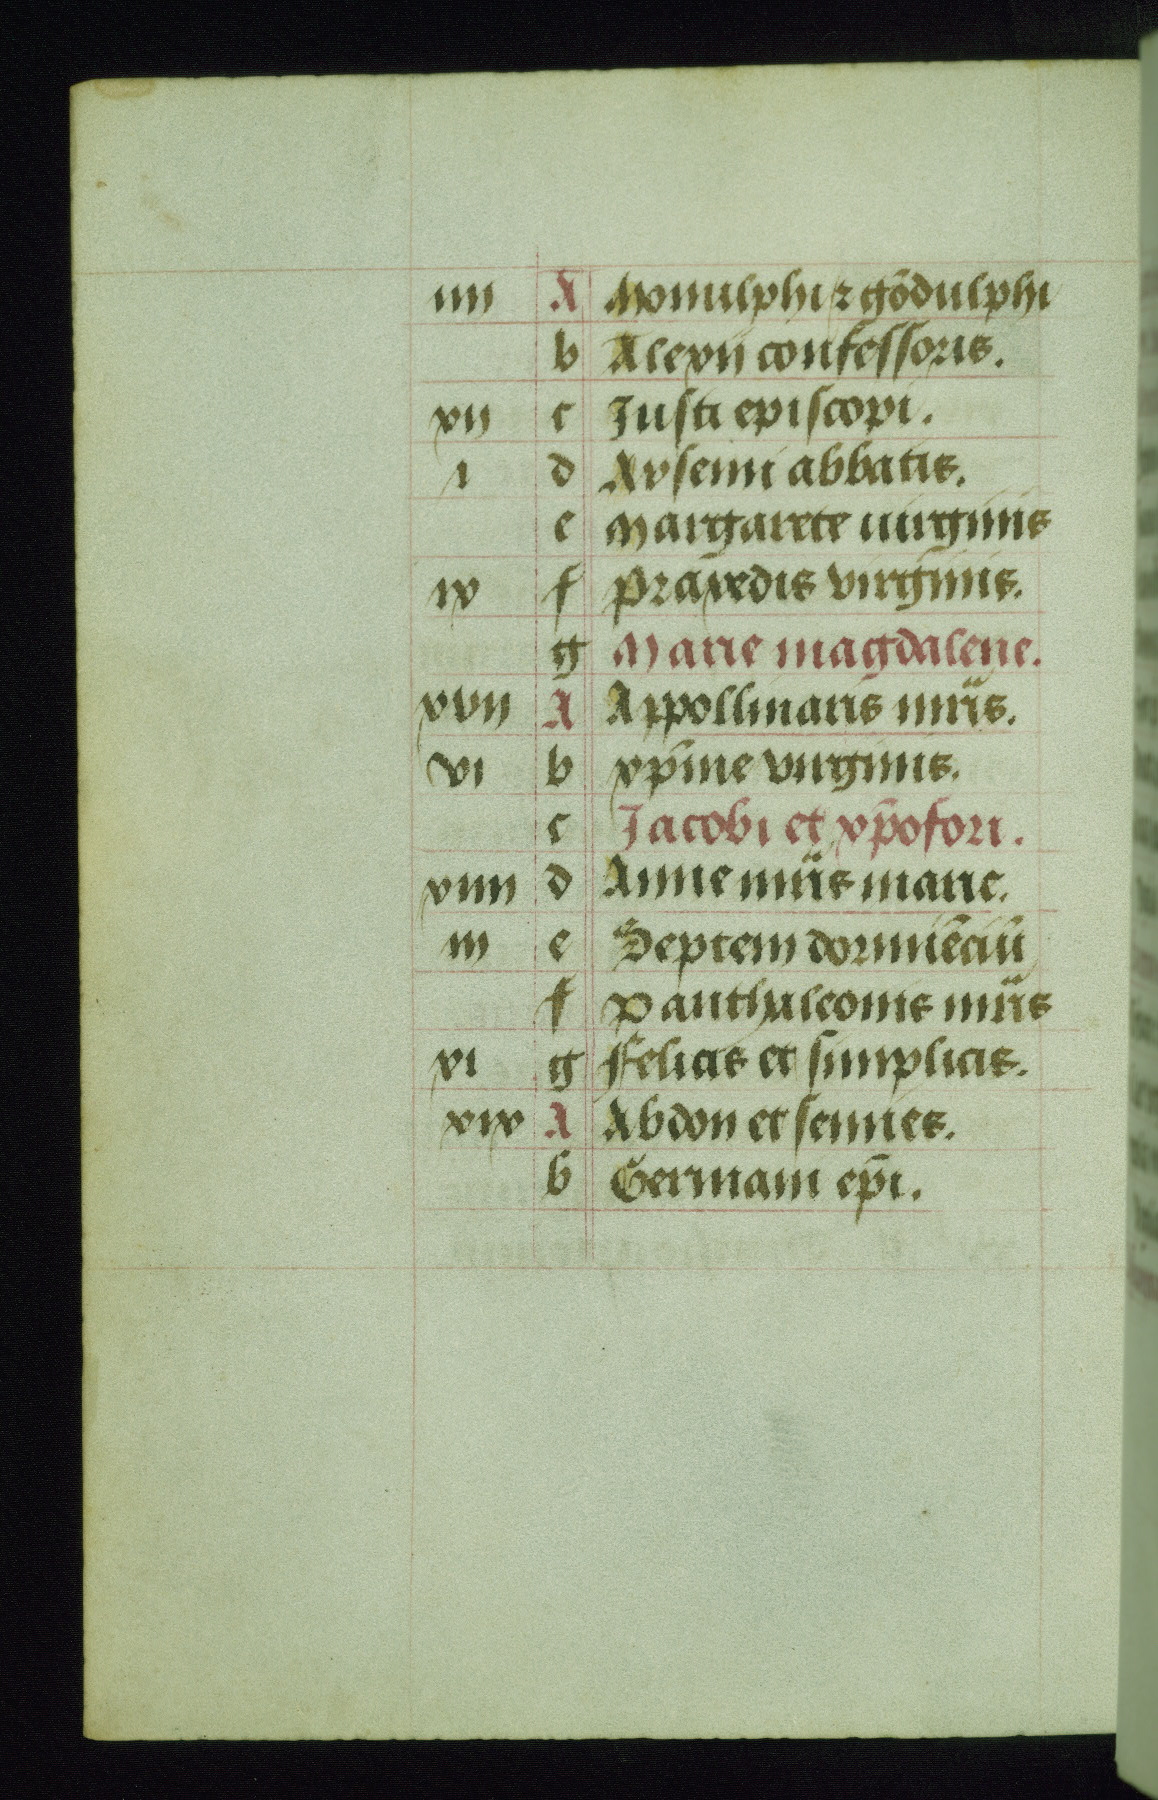 iiii A Monulphi ⁊ gōdulphi
b Alexii confessoris.
xii c Iusti episcopi.
i d Arsenii abbatis.
e Margarete uirginis
ix f Praxedis virginis.
g Marie magdalene.
xvii A Appollinaris mr̄is.
vi b xp̄ine virginis.
c Jacobi et xp̄ofori.
xiiii d Anne mr̄is marie.
iii e Septem dormiēciū
f Panthaleonis mr̄is
xi g Felicis et simplicis.
xix A Abdon et sennes.
b Germani ep̄i.